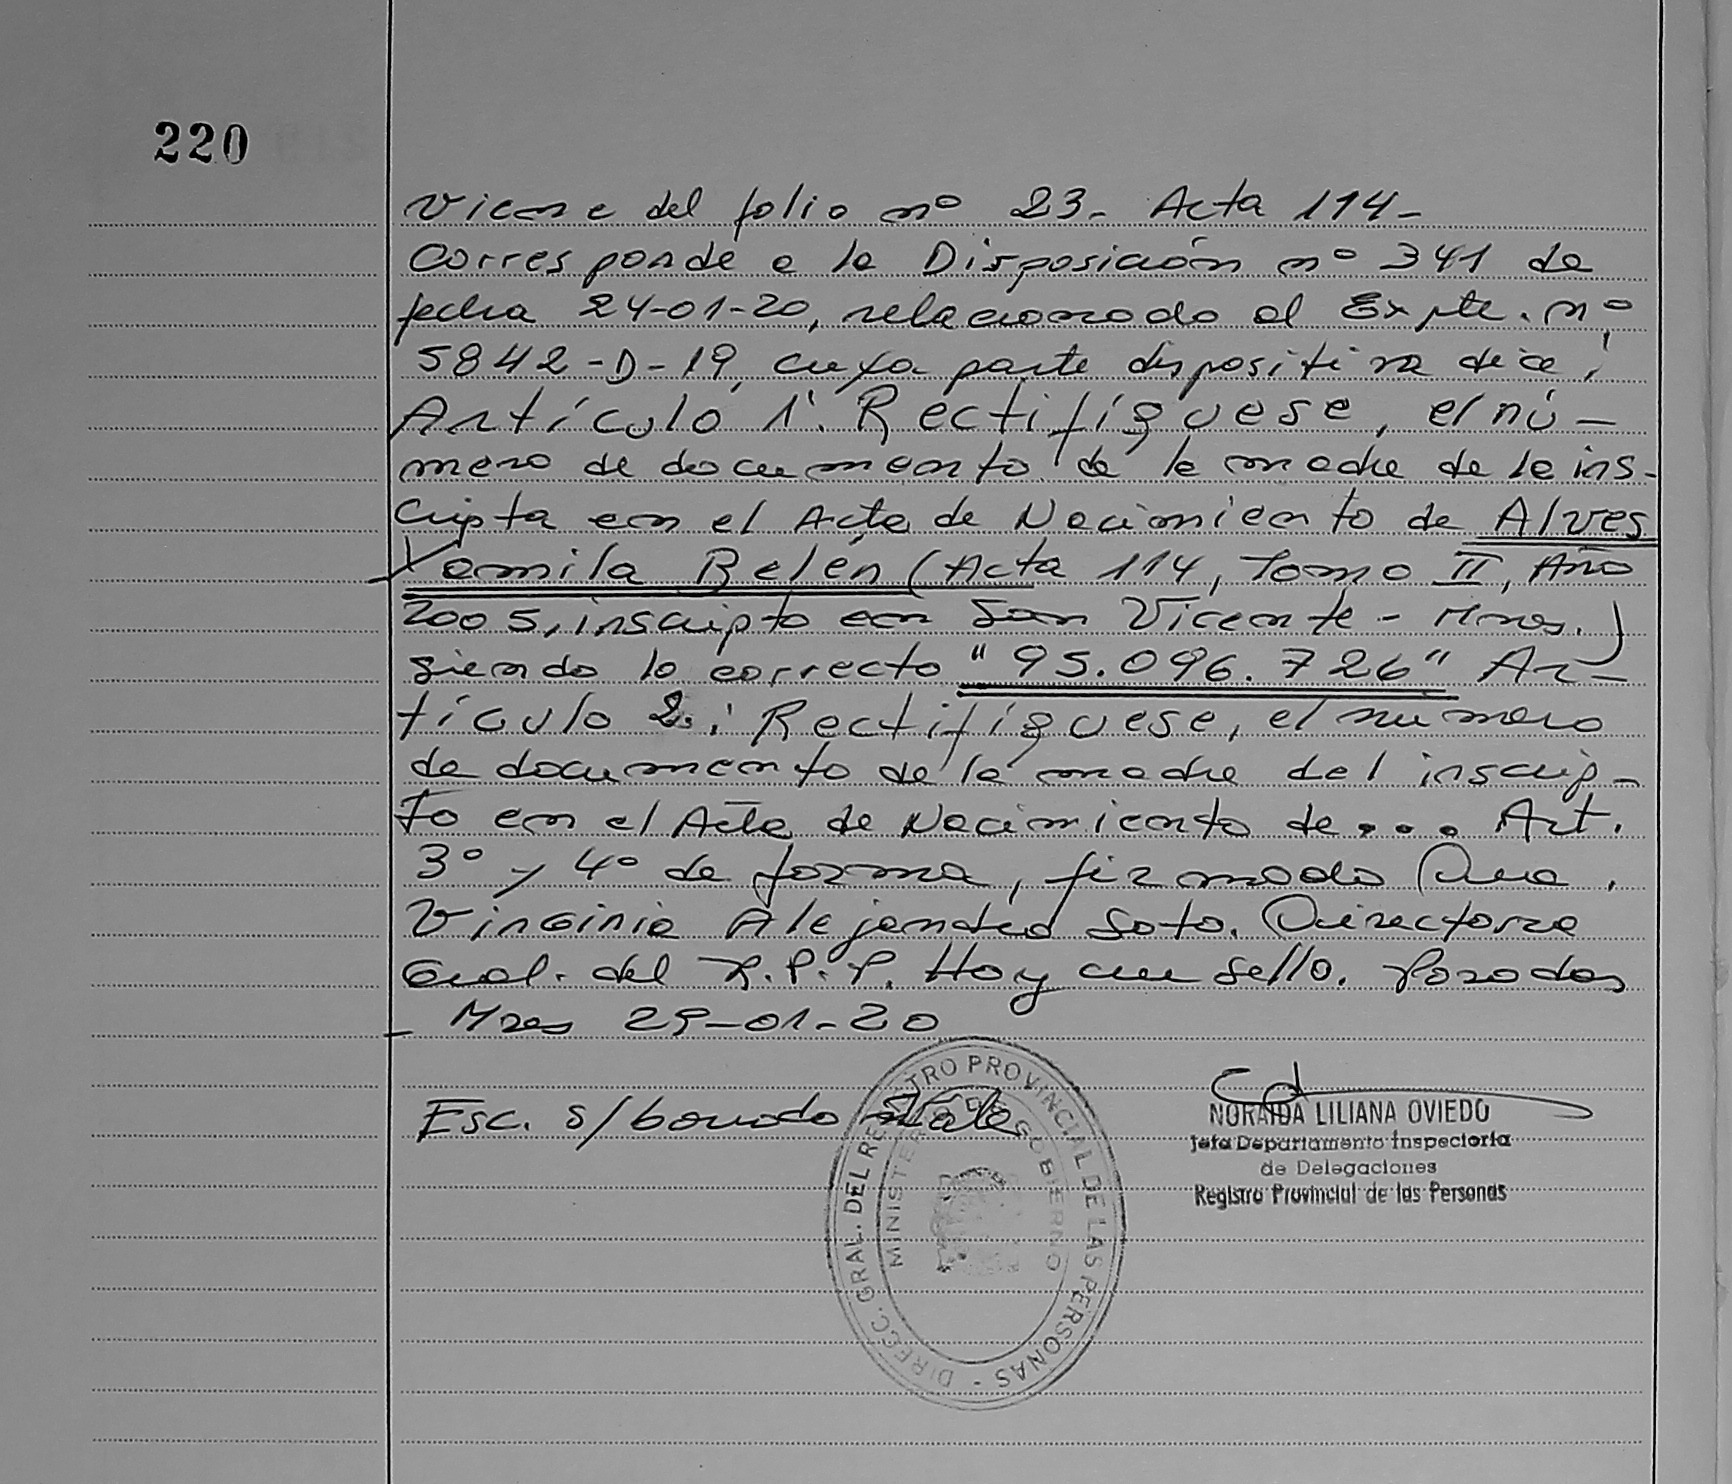 220
Viene del folio nº 23. Acta 114-
Corresponde a la Disposición nº 341 de
fecha 24-01-20, relacionado al Expte. nº
5842-D-19, cuya parte dispositiva dice:
Artículo 1º. Rectifíquese, el nú-
mero de documento de la madre de la ins-
cripta en el Acta de Nacimiento de Alves
Yamila Belén (Acta 114, Tomo II, Año
2005, inscripto en San Vicente - Mnes.)
siendo lo correcto "95.096.726" Ar-
tículo 2.: Rectifíquese, el número
de documento de la madre del inscrip-
to en el Acta de Nacimiento de... Art.
3º y 4º de forma, firmado Dra.
Virginia Alejandra Soto. Directora
Gral. del R.P.P. Hay un sello. Posadas
- Mnes 29-01-20
Esc. s/borrado Vale
DIREC. GRAL. DEL REGISTRO PROVINCIAL DE LAS PERSONAS -
MINISTERIO DE GOBIERNO
NORAIDA LILIANA OVIEDO
Jefa Departamento Inspectoría
de Delegaciones
Registro Provincial de las Personas